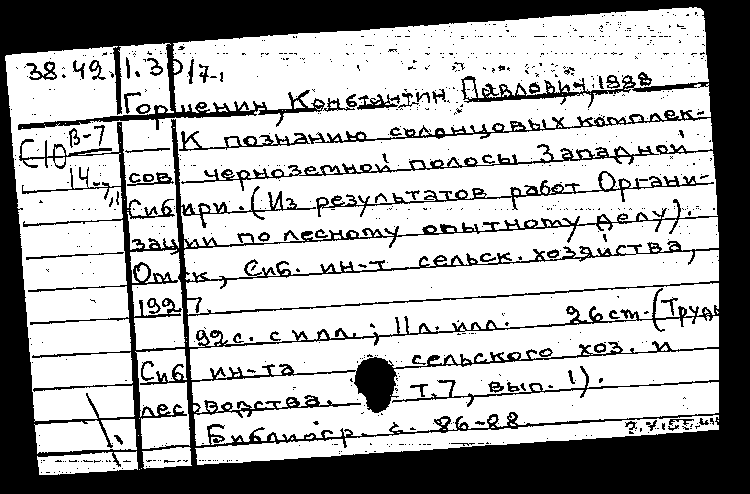 38.49.1.30/7.1
Горшенин, Константин Павлович, 1888
К познанию солонцовых комплек-
С10 В-7
14
сов черноземной полосы Западной
Сибири. (Из результатов работ Органи-
зации по лесному опытному делу).
Омск, Сиб. ин-т сельск. хозяйства,
1927.
92 с. с илл.; 11 л. илл. 26 ст. (Труды
Сиб ин-та сельского хоз. и
лесоводства. Т.7, вып. 1).
Библиогр. с. 86-88.